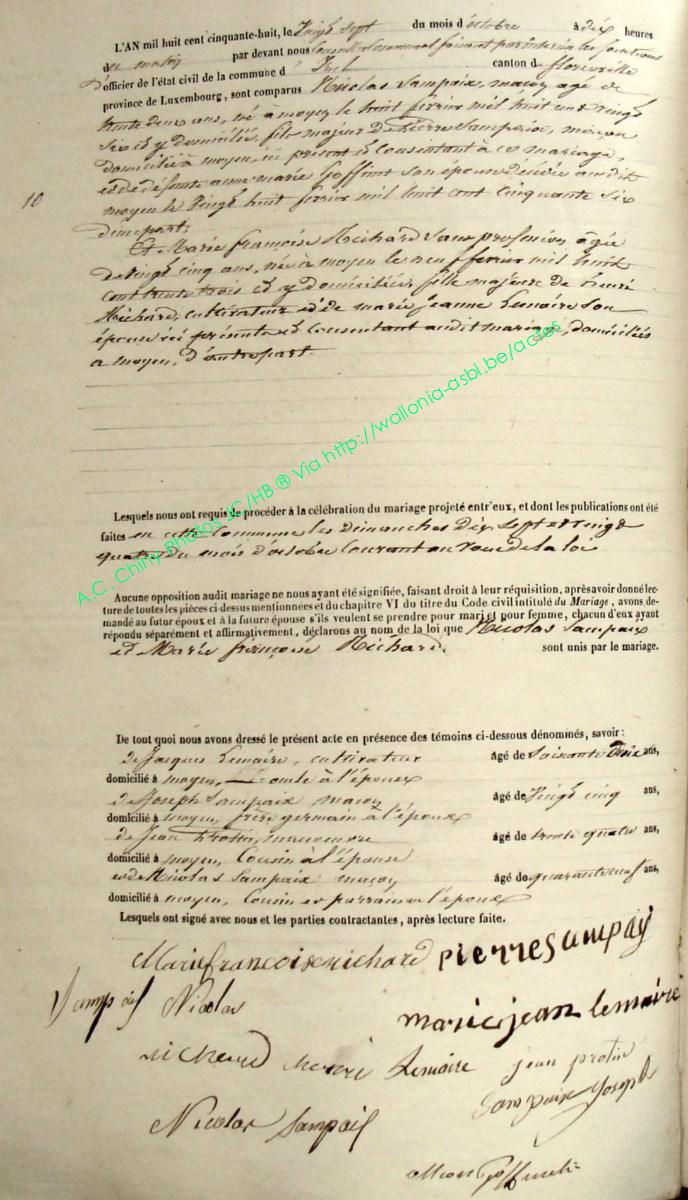 L'AN mil huit cent cinquante-huit, le Vingt sept du mois d'octobre à dix heures
du matin par devant nous Conseiller Communal faisant par intérim les fonctions
d'officier de l'état civil de la commune d'Izel canton de florenville
province de Luxembourg, sont comparus Nicolas Sampaix, maçon agé de
trente deux ans, né à moyen le huit fevrier mil huit cent vingt
six et y domicilié, fils majeur de Pierre Sampaix, maçon
domicilié à moyen, ici présent et Consentant à ce mariage,
et de défunte anne marie Goffinet son épouse décédée audit
moyen le Vingt huit fevrier mil huit cent Cinquante six
10
d'une part;
Et Marie françoise Richard Sans profession, agée
de vingt cinq ans, née à moyen le neuf fevrier mil huit
cent trente trois et y domiciliée, fille majeure de henri
Richard, cultivateur et de marie jeanne Lemoire Son
épouse ici présents et Consentant audit mariage, domiciliés
a moyen, d'autre part.
Lesquels nous ont requis de procéder à la célébration du mariage projeté entr'eux, et dont les publications ont été
faites en cette Commune les dimanches dix Sept et vingt
quatre du mois d'octobre Courant au voeu de la loi
Aucune opposition audit mariage ne nous ayant été signifiée, faisant droit à leur réquisition, après avoir donné lec-
ture de toutes les pièces ci-dessus mentionnées et du chapitre VI du titre du Code civil intitulé du Mariage, avons de-
mandé au futur époux et à la future épouse s'ils veulent se prendre pour mari et pour femme, chacun d'eux ayant
répondu séparément et affirmativement, déclarons au nom de la loi que Nicolas Sampaix
et Marie françoise Richard. sont unis par le mariage.
De tout quoi nous avons dressé le présent acte en présence des témoins ci-dessous dénommés, savoir:
de Jacques Lemoire, cultivateur âgé de Soixante ans,
domicilié à moyen, oncle à l'épouse
de Joseph Sampaix maçon âgé de Vingt cinq ans,
domicilié à moyen, frère germain à l'époux
de Jean âgé de trente quatre ans,
domicilié à moyen, Cousin à l'épouse
et de Nicolas Sampaix maçon âgé de quarante neuf ans,
domicilié à moyen, Cousin et parrain de l'époux
Lesquels ont signé avec nous et les parties contractantes, après lecture faite.
Marie francoise richard pierre Sampay
Sampaix Nicolas
marie jean lemoire
richard henri Lemoire jean protin
Sampaix Joseph
Nicolas Sampaix
A.C. Chiny-photos JC/HB ® Via http://wallonia-asbl.be/actes